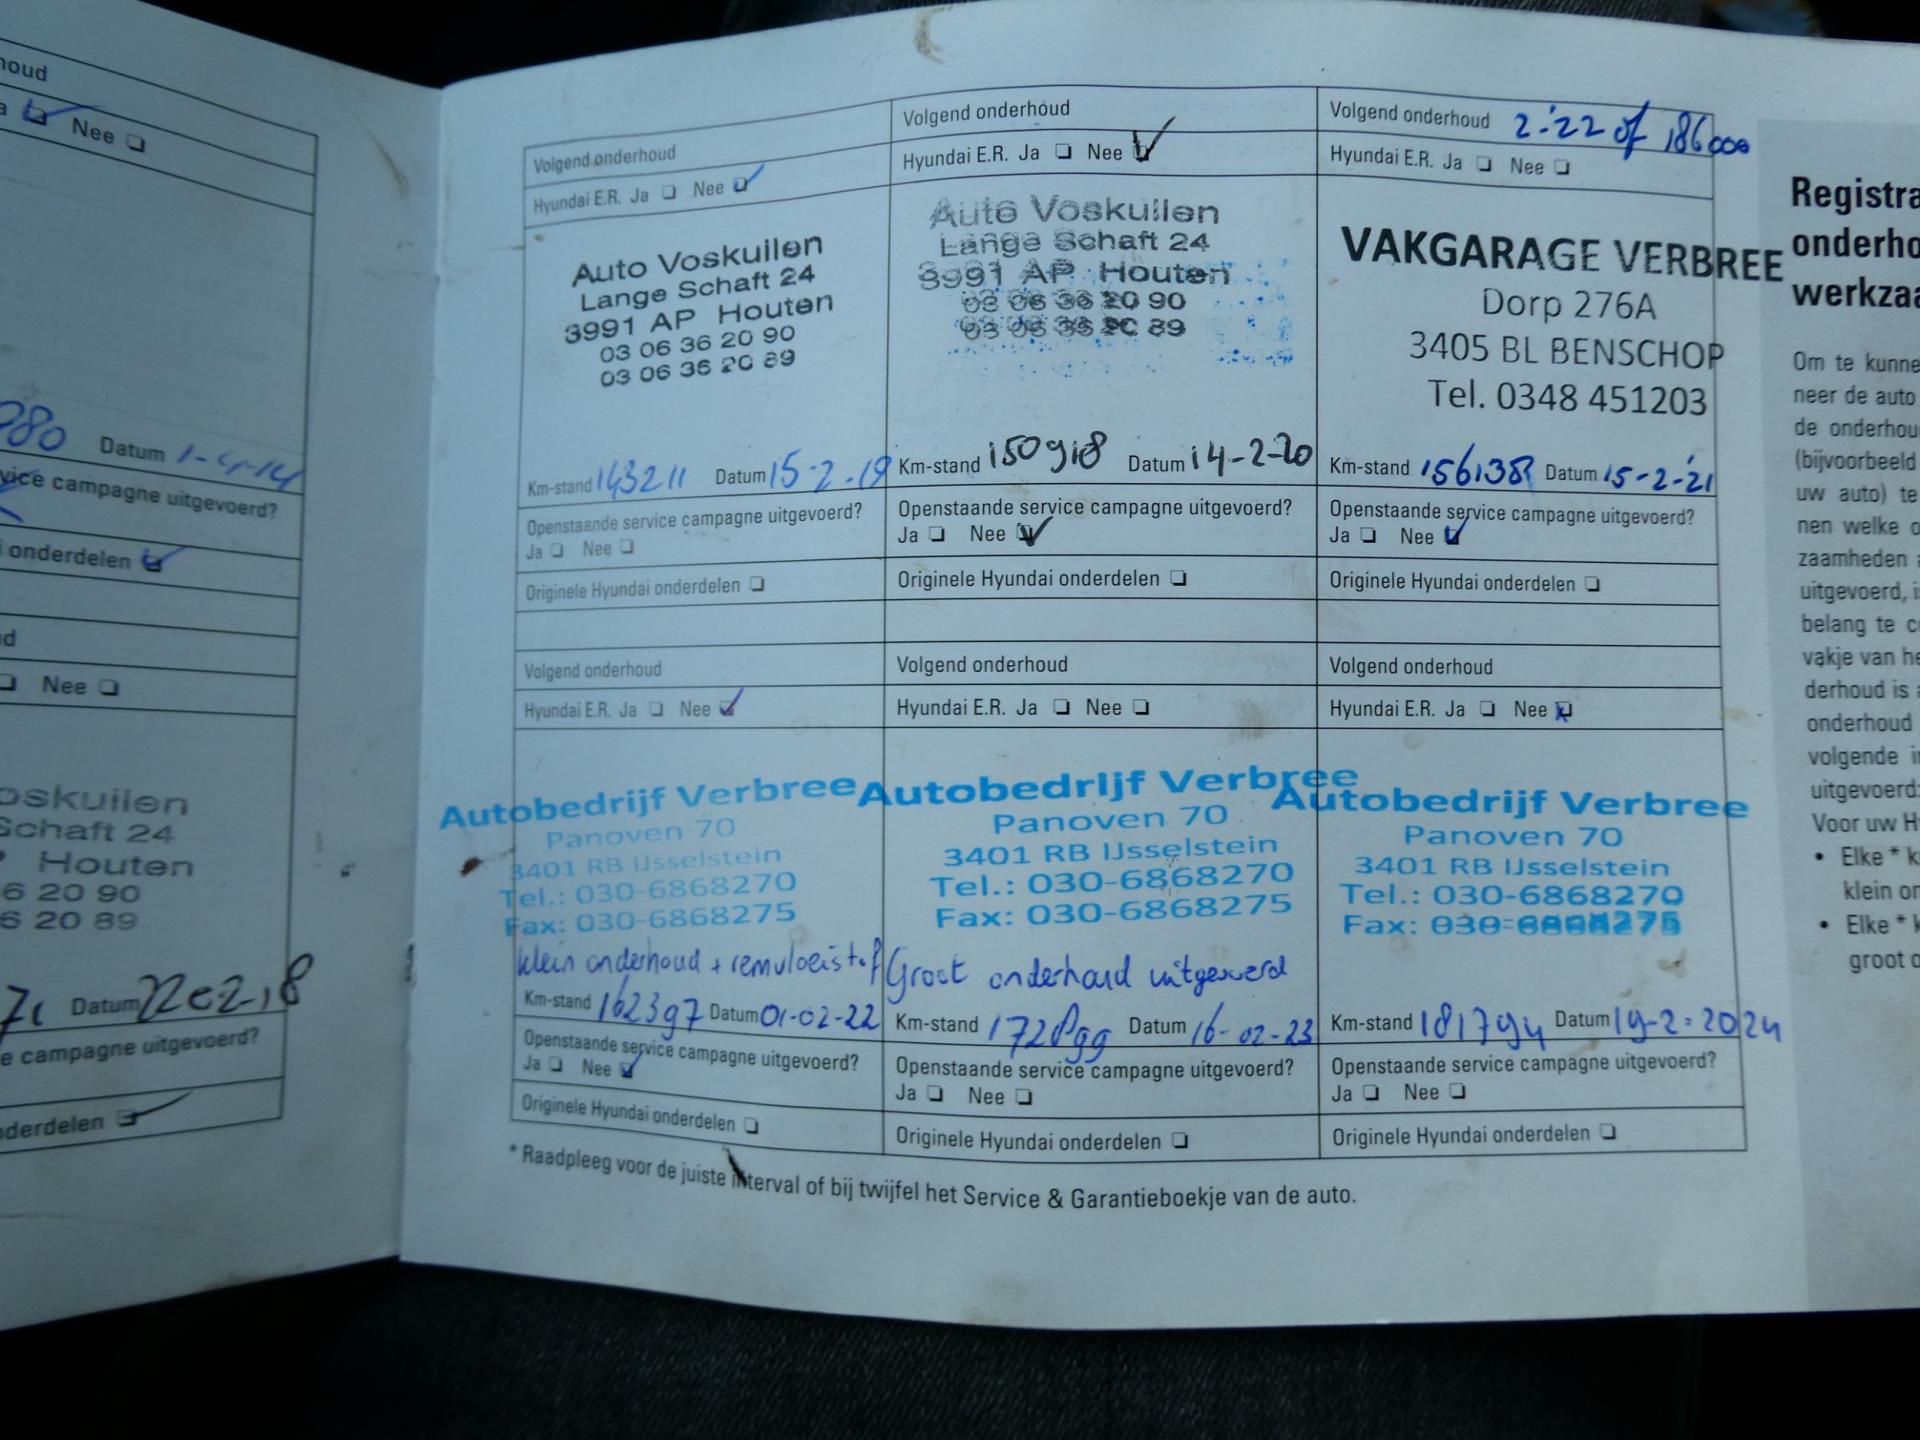 houd
a Nee
080 Datum 1-4-14
vice campagne uitgevoerd?
i onderdelen
d
Nee
oskuilen
Schaft 24
P Houten
6 20 90
6 20 89
Datum
e campagne uitgevoerd?
nderdelen
Volgend onderhoud
Hyundai E.R. Ja Nee
Auto Voskuilen
Lange Schaft 24
3991 AP Houten
03 06 36 20 90
03 06 36 20 89
Km-stand 143211 Datum 15-2-19
Openstaande service campagne uitgevoerd?
Ja Nee
Originele Hyundai onderdelen
Volgend onderhoud
Hyundai E.R. Ja Nee
Auto Voskuilen
Lange Schaft 24
3991 AP Houten
03 06 36 20 90
03 06 36 20 89
Km-stand 150918 Datum 14-2-20
Openstaande service campagne uitgevoerd?
Ja Nee
Originele Hyundai onderdelen
Volgend onderhoud 2-'22 of 186000
Hyundai E.R. Ja Nee
VAKGARAGE VERBREE
Dorp 276A
3405 BL BENSCHOP
Tel. 0348 451203
Km-stand 156138 Datum 15-2-'21
Openstaande service campagne uitgevoerd?
Ja Nee
Originele Hyundai onderdelen
Volgend onderhoud
Hyundai E.R. Ja Nee
Autobedrijf Verbree
Panoven 70
3401 RB IJsselstein
Tel.: 030-6868270
Fax: 030-6868275
klein onderhoud + remvloeistof
Km-stand 162397 Datum 01-02-22
Openstaande service campagne uitgevoerd?
Ja Nee
Originele Hyundai onderdelen
Volgend onderhoud
Hyundai E.R. Ja Nee
Autobedrijf Verbree
Panoven 70
3401 RB IJsselstein
Tel.: 030-6868270
Fax: 030-6868275
Groot onderhoud uitgevoerd
Km-stand 172899 Datum 16-02-23
Openstaande service campagne uitgevoerd?
Ja Nee
Originele Hyundai onderdelen
Volgend onderhoud
Hyundai E.R. Ja Nee
Autobedrijf Verbree
Panoven 70
3401 RB IJsselstein
Tel.: 030-6868270
Fax: 030-6868275
Km-stand 181794 Datum 19-2-2024
Openstaande service campagne uitgevoerd?
Ja Nee
Originele Hyundai onderdelen
* Raadpleeg voor de juiste interval of bij twijfel het Service & Garantieboekje van de auto.
Registra
onderho
werkzaa
Om te kunne
neer de auto
de onderhou
(bijvoorbeeld
uw auto) te
nen welke o
zaamheden a
uitgevoerd, i
belang te c
vakje van he
derhoud is a
onderhoud
volgende i
uitgevoerd:
Voor uw H
• Elke * k
klein on
• Elke * k
groot o